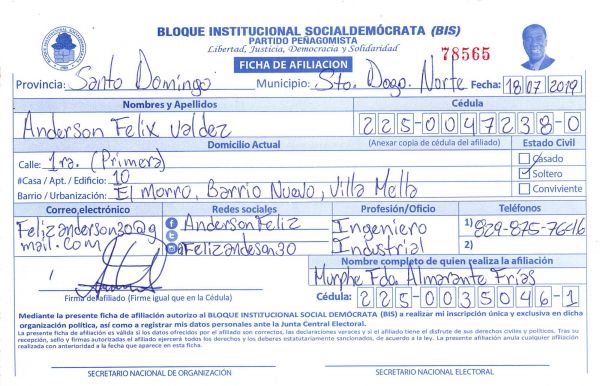 BLOQUE INSTITUCIONAL SOCIALDEMÓCRATA (BIS)
PARTIDO PEÑAGOMISTA
Libertad, Justicia, Democracia y Solidaridad
FICHA DE AFILIACION
78565
Provincia: Santo Domingo Municipio: Sto. Dgo. Norte Fecha: 18 07 2019
Nombres y Apellidos Cédula
Anderson Felix Valdez 225-0047238-0
Domicilio Actual (Anexar copia de cédula del afiliado) Estado Civil
Calle: 1ra. (Primera) Casado
#Casa / Apt. / Edificio: 10 Soltero
Barrio / Urbanización: El Morro, Barrio Nuevo, Villa Mella Conviviente
Correo electrónico Redes sociales Profesión/Oficio Teléfonos
Felizanderson30@g AndersonFeliz Ingeniero 1) 829-875-7646
mail.com Felizandeson30 Industrial 2)
Nombre completo de quien realiza la afiliación
Murphe Fda. Almarante Frías
Firma de afiliado (Firme igual que en la Cédula) Cédula: 225-0035046-1
Mediante la presente ficha de afiliación autorizo al BLOQUE INSTITUCIONAL SOCIAL DEMÓCRATA (BIS) a realizar mi inscripción única y exclusiva en dicha
organización política, así como a registrar mis datos personales ante la Junta Central Electoral.
La presente ficha de afiliación es válida si los datos ofrecidos por el afiliado son correctos, las declaraciones veraces y si el afiliado tiene el disfrute de sus derechos civiles y políticos. Tras su
recepción, sello y firmas autorizadas el afiliado ejercerá todos los derechos y los deberes estatutariamente sancionados, de acuerdo a la ley. La presente afiliación anula cualquier afiliación
realizada con anterioridad a la fecha que aparece en esta ficha.
SECRETARIO NACIONAL DE ORGANIZACIÓN SECRETARIO NACIONAL ELECTORAL